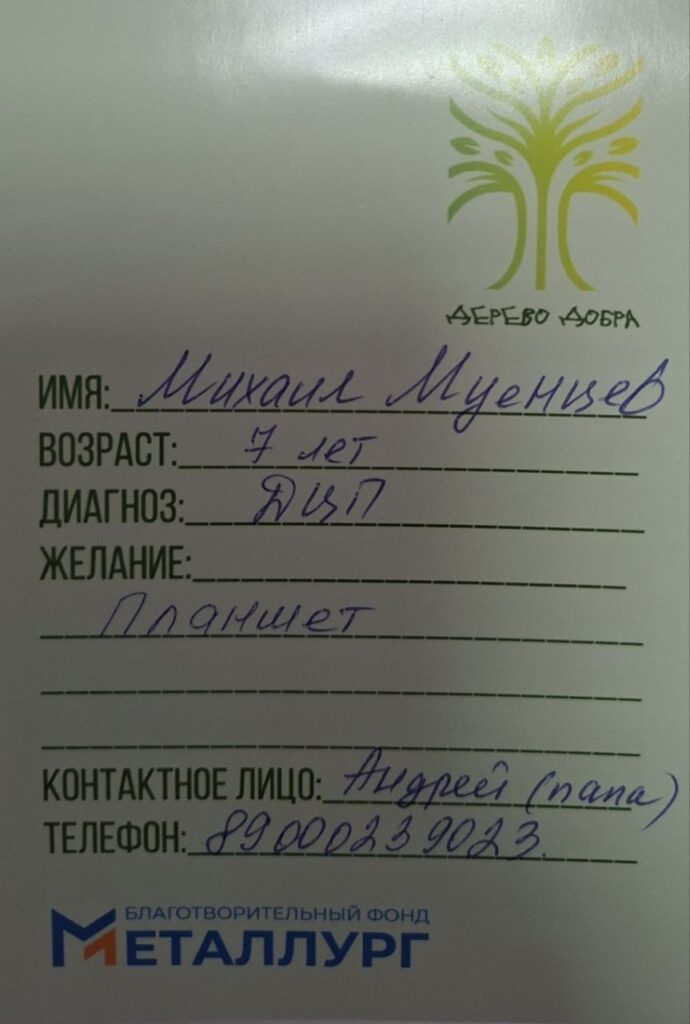 ДЕРЕВО ДОБРА
ИМЯ: Михаил Муенцев
ВОЗРАСТ: 7 лет
ДИАГНОЗ: ДЦП
ЖЕЛАНИЕ:
Планшет
КОНТАКТНОЕ ЛИЦО: Андрей (папа)
ТЕЛЕФОН: 89000239023
БЛАГОТВОРИТЕЛЬНЫЙ ФОНД
МЕТАЛЛУРГ